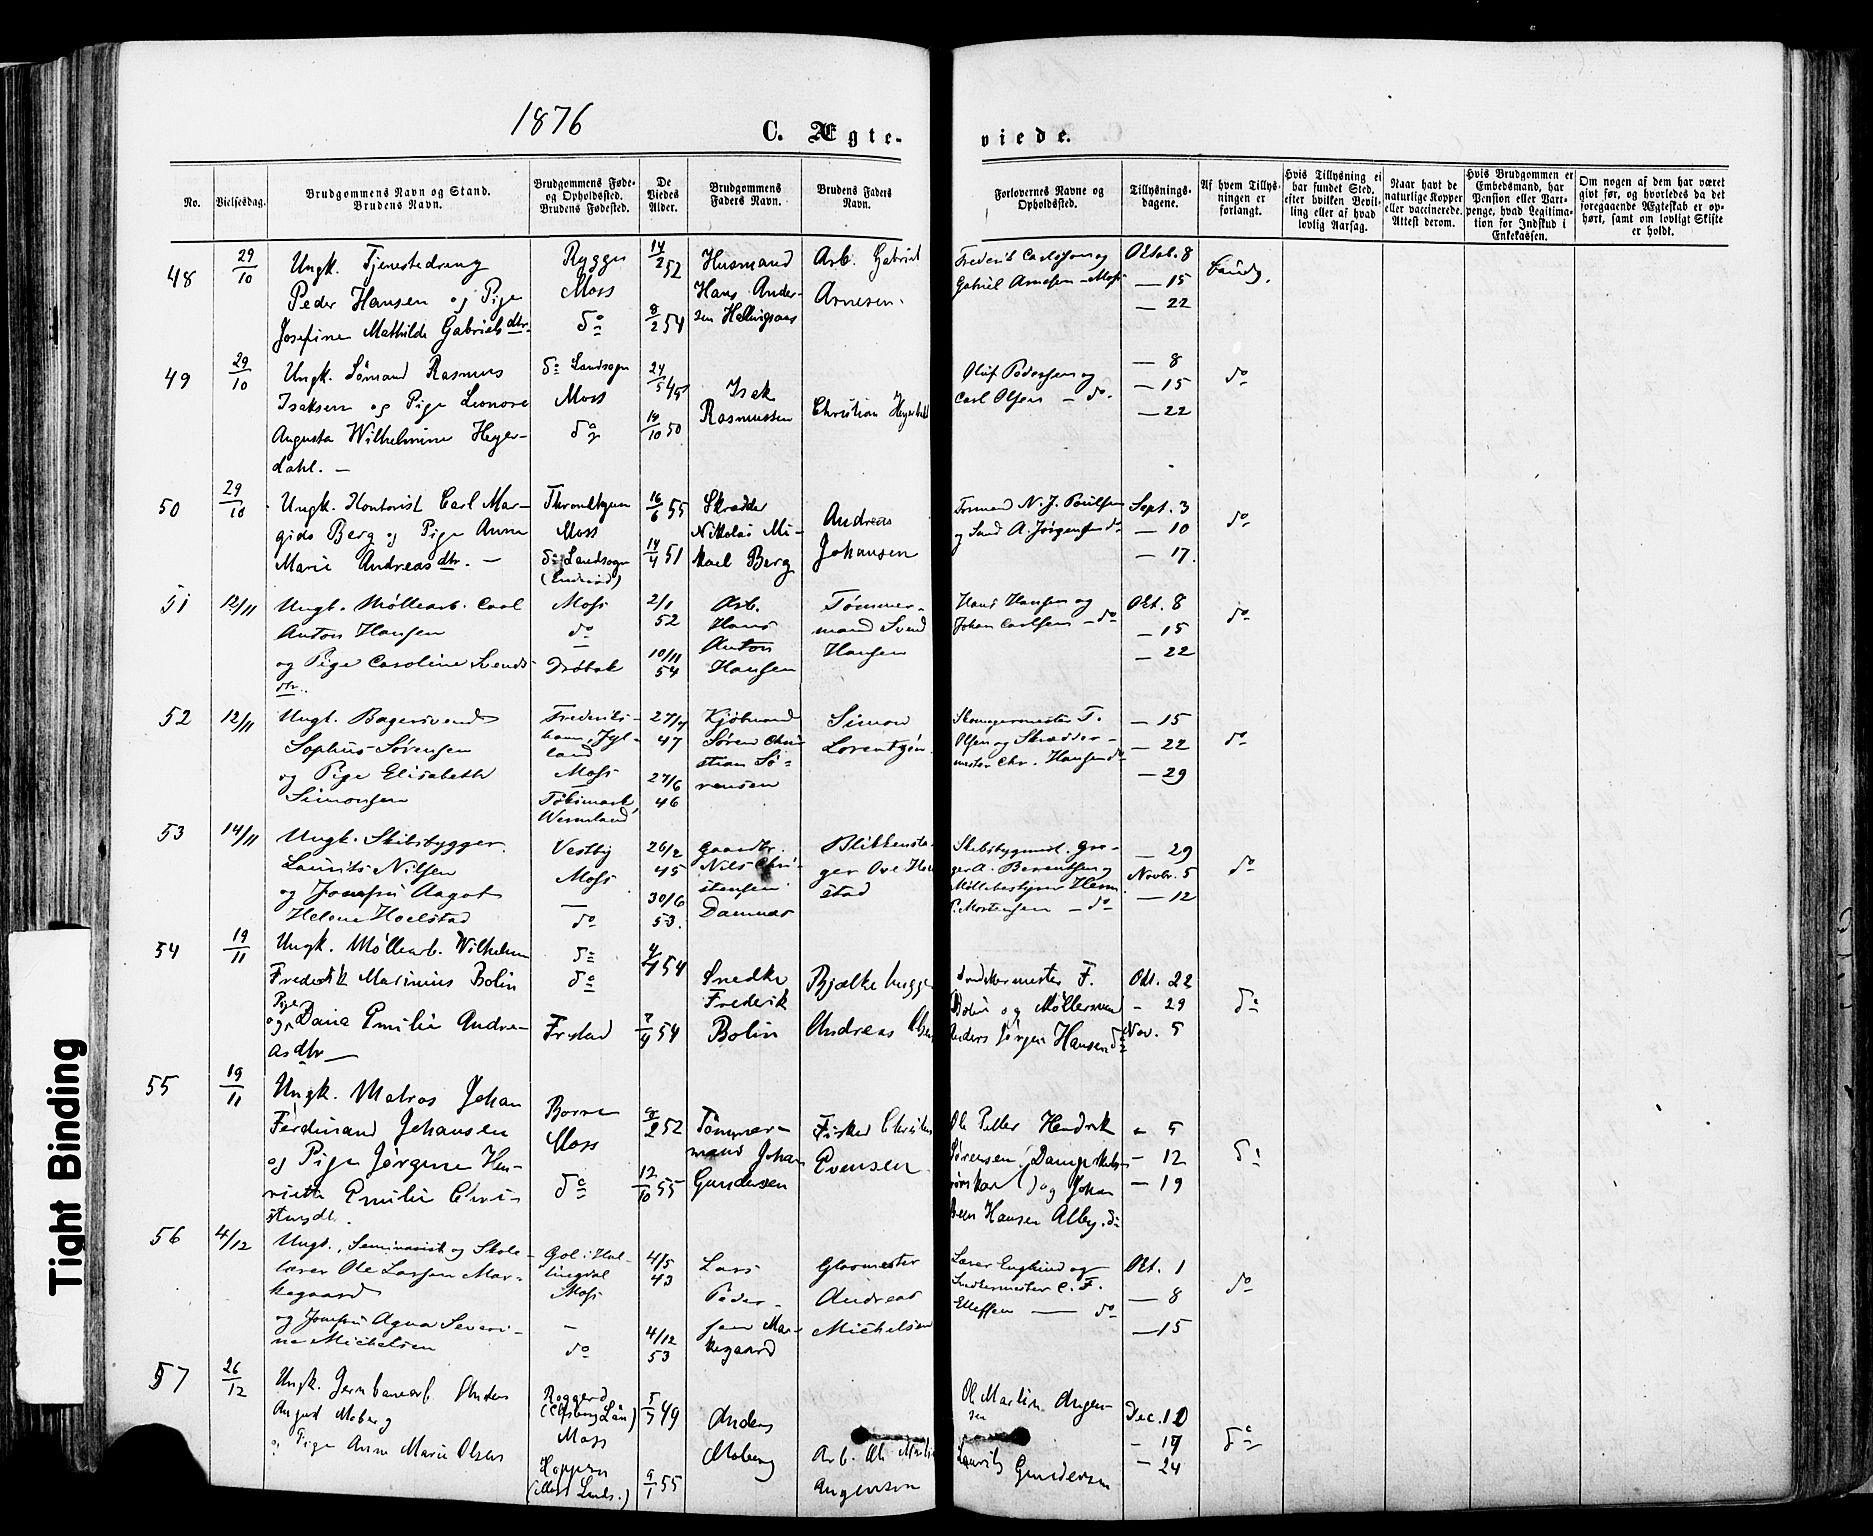 1876
C. Ægte- viede.
No.
Vielsesdag.
Brudgommens Navn og Stand.
Brudens Navn.
Brudgommens Føde-
og Opholdssted.
Brudens Fødested.
De
Viedes
Alder.
Brudgommens
Faders Navn.
Brudens Faders
Navn.
Forlovernes Navne og
Opholdssted.
Tillysnings-
dagene.
Af hvem Tillys-
ningen er
forlangt.
Hvis Tillysning ei
har fundet Sted,
efter hvilken Bevil-
ling eller af hvad
lovlig Aarsag.
Naar havt de
naturlige Kopper
eller vaccinerede.
Attest derom.
Hvis Brudgommen er
Embedsmand, har
Pension eller Vart-
penge, hvad Legitima-
tion for Indskud i
Enkekassen.
Om nogen af dem har været
givt før, og hvorledes da det
foregaaende Ægteskab er op-
hørt, samt om lovligt Skifte
er holdt.
48
29/10
Ungk. Tjenestedreng
Peder Hansen og Pige
Josefine Mathilde Gabrielsdtr.
Rygge
Moss
do
14/2 52
8/2 54
Husmand
Hans Ander-
sen
Arb. Gabriel
Arnesen.
Frederik Carlssen og
Gabriel Arnesen - Moss
Oktob. 8
— 15
— 22
49
29/10
Ungk. Sømand Rasmus
Isaksen og Pige Leonore
Augusta Wilhelmine Heyer-
dahl. —
do Landsogn
Moss
do
24/5 45
14/10 50
Isak
Rasmussen
Christian Heyerdahl
Oluf Pedersen og
Carl Olsen - do.
— 8
— 15
— 22
do
50
29/10
Ungk. Kontorist Carl Mar-
Berg og Pige Anne
Marie Andreasdtr. —
Moss
do Landsogn
16/6 55
14/4 51
Skrædder
Nikolai Mi-
kael Berg
Andreas
Johansen
Formand N. J. Poulsen
og A. Jørgensen do
Sept. 3
— 10
— 17.
do
51
12/11
Ungk. Møllearb. Carl
Anton Hansen
og Pige Caroline Svends-
dtr.
Moss
do
Drøbak
2/1
52
10/11
54
Arb.
Hans
Anton
Hansen
Tømmer-
mand Svend
Hansen
Hans Hansen og
Johan Carlsen - do
Okt. 8
— 15
— 22
do
52
12/11
Ungk. Bagersvend
Sophus Sørensen
og Pige Elisabeth
Simonsen
Frederiks-
havn, Jyl-
land
Moss
Wermland
27/7
47
27/6
46
Kjøbmand
Søren Chri-
stian Sø-
rensen
Simon
Lorentzen
T.
Olsen og Skrædder-
mester Chr. Hansen do
— 15
— 22
— 29
do
53
14/11
Ungk. Skibsbygger
Laurits Nilsen
og Jomfru Aagot
Helene Hoelstad
Vestby
Moss
—
do
26/2
45
30/6
53.
Gaardbr.
Nils Chri-
stensen
Blikkensla-
ger Ove Hoel-
stad
A. Berentsen og
Møllebestyrer Herm.
P. Mortensen - do
— 29
Novbr. 5
— 12
do
54
19/11
Ungk. Møllearb. Wilhelm
Frederik Marinius Bolin
Pige
og Emilie Andre-
asdtr —
do
do
54
54
Snedker
Frederik
Bolin
Bjælkehugger
Andreas
Snedkermester F.
Bolin og Møllersvend
Anders Jørgen Hansen do
Okt. 22
- 29
Nov. 5
do
55
19/11
Ungk. Matros Johan
Ferdinand Johansen
og Pige Jørgine Hen-
riette Emilie Chri-
stensdtr.
Borre
Moss
do
52
12/10 55
Tømmer-
mand Johan
Gundersen
Fisker Christen
Evensen
Ole Petter Hendrik
Sørensen
og Johan
Hansen Alby. do
- 5
- 12
- 19
do
56
4/12
Ungk., Seminarist og Skole-
lærer Ole Larsen Mar-
kegaard
og Jomfru Agna Severi-
ne Michelsen
Gol i Hal-
lingdal
Moss
-
do
4/5
43
4/12
53
Lars
Peder-
sen Ma-
kegaard
Glarmester
Andreas
Michelsen
Lærer Englund og
Snedkermester C. F.
Ellefsen — do
Okt. 1
— 8
— 15
do
57
26/12
Ungk. Jernbanearb. Anders
August Moberg
og Pige Anne Marie Olsen
Moss
Hoppern
(Moss Lands.)
49
9/1 55
Anders
Moberg
Arb. Ole Martin
Angensen
Ole Martin Angen-
sen
Laurits Gundersen
Dec. 10
- 17
- 24
do
Tight Binding